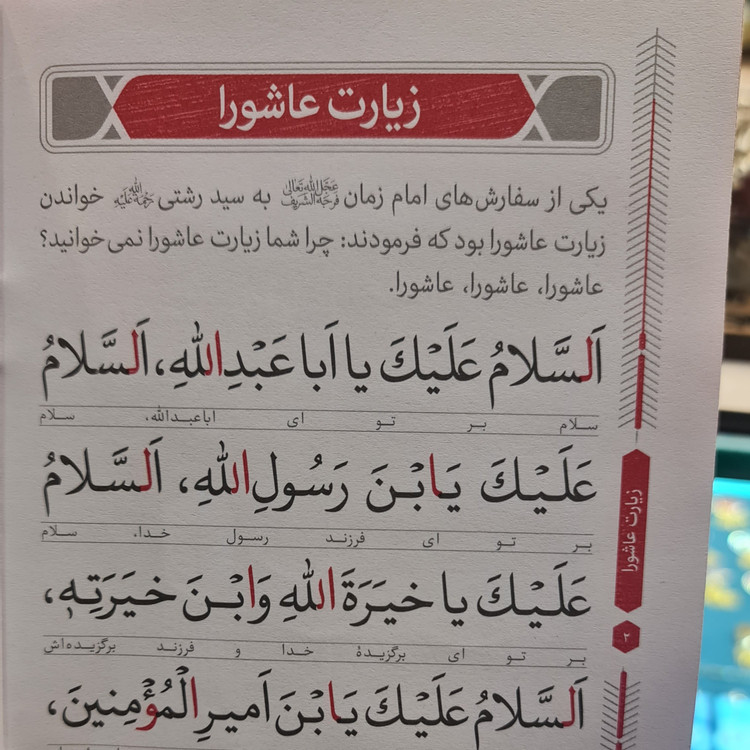 زیارت عاشورا
یکی از سفارش‌های امام زمان عَجَّلَ‌اللهُ‌تَعالی‌فَرَجَهُ‌الشَّریف به سید رشتی رَحمَةُ‌اللهِ‌عَلَیه خواندن
زیارت عاشورا بود که فرمودند: چرا شما زیارت عاشورا نمی‌خوانید؟
عاشورا، عاشورا، عاشورا.
اَلسَّلامُ عَلَیْكَ یا اَبا عَبْدِاللهِ، اَلسَّلامُ
سلام بر تو ای اباعبدالله، سلام
عَلَیْكَ یَابْنَ رَسُولِ اللهِ، اَلسَّلامُ
بر تو ای فرزند رسول خدا، سلام
عَلَیْكَ یا خیَرَةَ اللهِ وَابْنَ خیَرَتِهٖ،
بر تو ای برگزیدهٔ خدا و فرزند برگزیده‌اش
اَلسَّلامُ عَلَیْكَ یَابْنَ اَمیرِ الْمُؤْمِنینَ،
زیارت عاشورا
۲